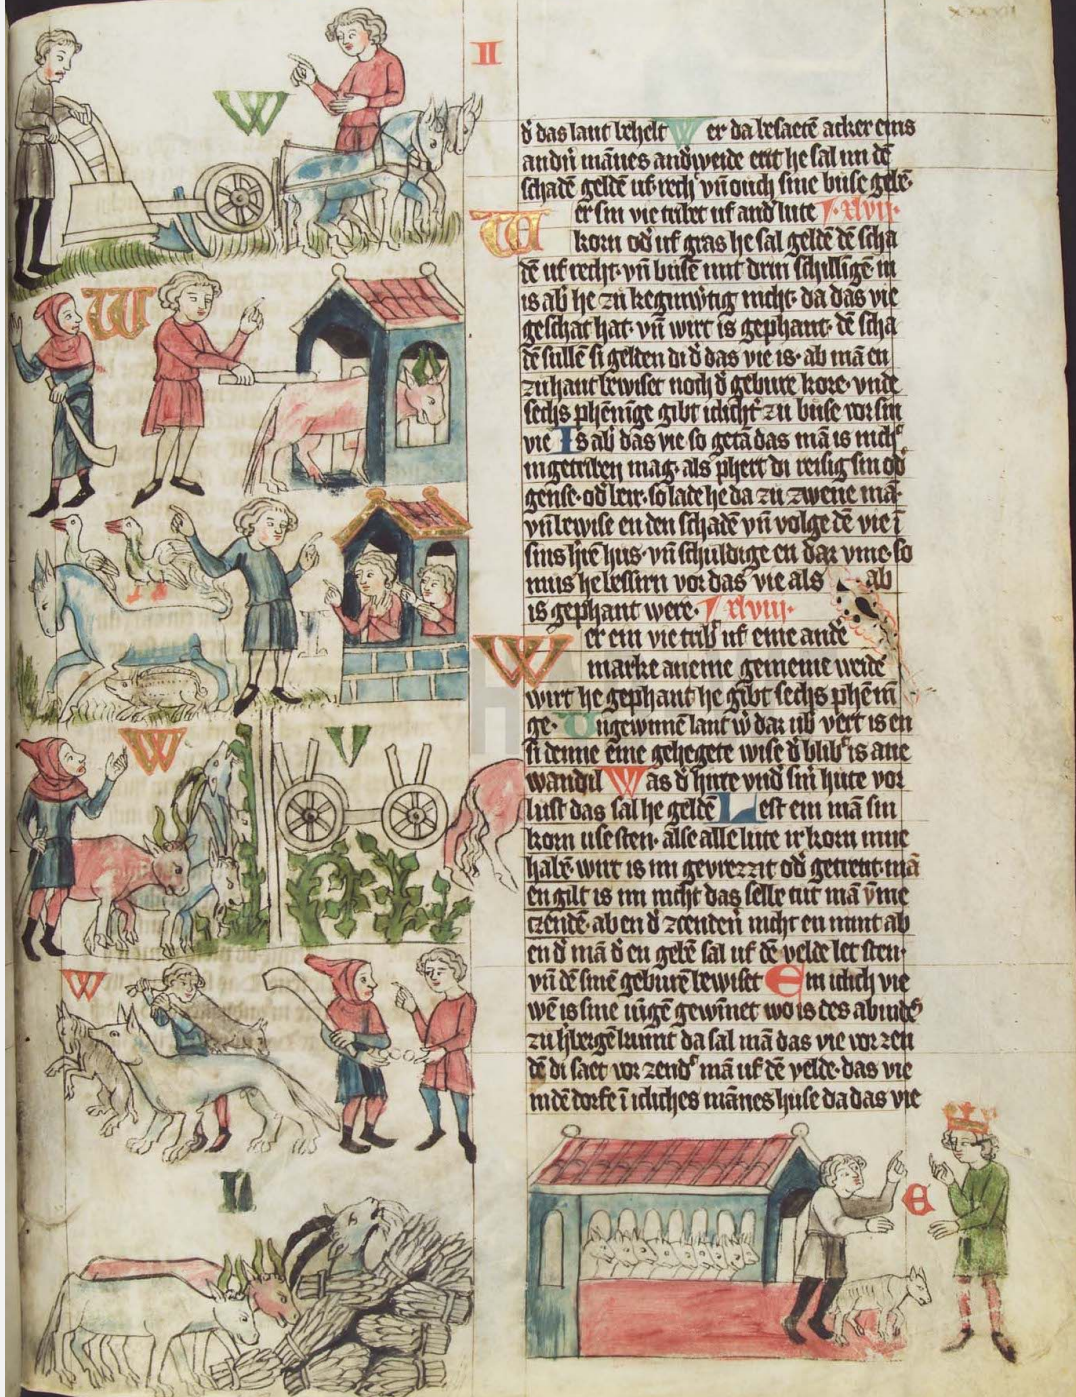 II
W
d' das lant behelt Wer da besaetē acker eins
andirn mānes andirweide erit he sal im dē
schadē geldē uf recht vn̄ ouch sine buse gebē·
Wer sin vie tribet uf andirs lute xlvii·
korn od' uf gras he sal geldē dē scha
dē uf recht· vn̄ busen mit drin schillīgē in
is ab' he zu keginw'tig nicht· da das vie
geschat hat· vn̄ wirt is gephant· dē scha
dē sullē si gelden di d' das vie is· ab mā en
zuhant bewiset noch d' gebure kore· vnde
sechs phēnige gibt iclich' zu buse vor sin
vie Is ab' das vie so getā das mā is nich'
ingetriben mag· als phert di reisig sin od'
gense· od' ber· so lade he da zu zwene mā·
vn̄ bewise en den schadē vn̄ volge dē vie ī
sins h'rē hus· vn̄ schuldige en dar vme· so
mus he bessirn vor das vie als ab
is gephant were· xlviii·
Wer ein vie trib' uf eine andere
marke an eine gemeine weide
wirt he gephant he gibt sechs phēni
ge· Ungewunnē lant w' dar ub' vert is en
si denne eine gehegete wise d' blib' is ane
wandil Was d' hirte vnd' sin' hute vor
lust das sal he geldē Lest ein mā sin
korn use sten· alse alle lute ir korn inne
habē· wirt is im gevrezzit od' getrent· mā
en gilt is im nicht das selbe tut mā v̄me
czendē· ab en d' zcendēn' nicht en nimt ab
en d' mā d' en gebē sal uf dē velde let sten·
vn̄ dē sinē geburē bewiset Ein iclich vie
wē is sine iūgē gewīnet wo is des abindes
zu h'berge kumt da sal mā das vie vor zen
dē di saet vor zend' mā uf dē velde· das vie
in dē dorfe ī icliches mānes huse da das vie
W
W
V
W
U
E